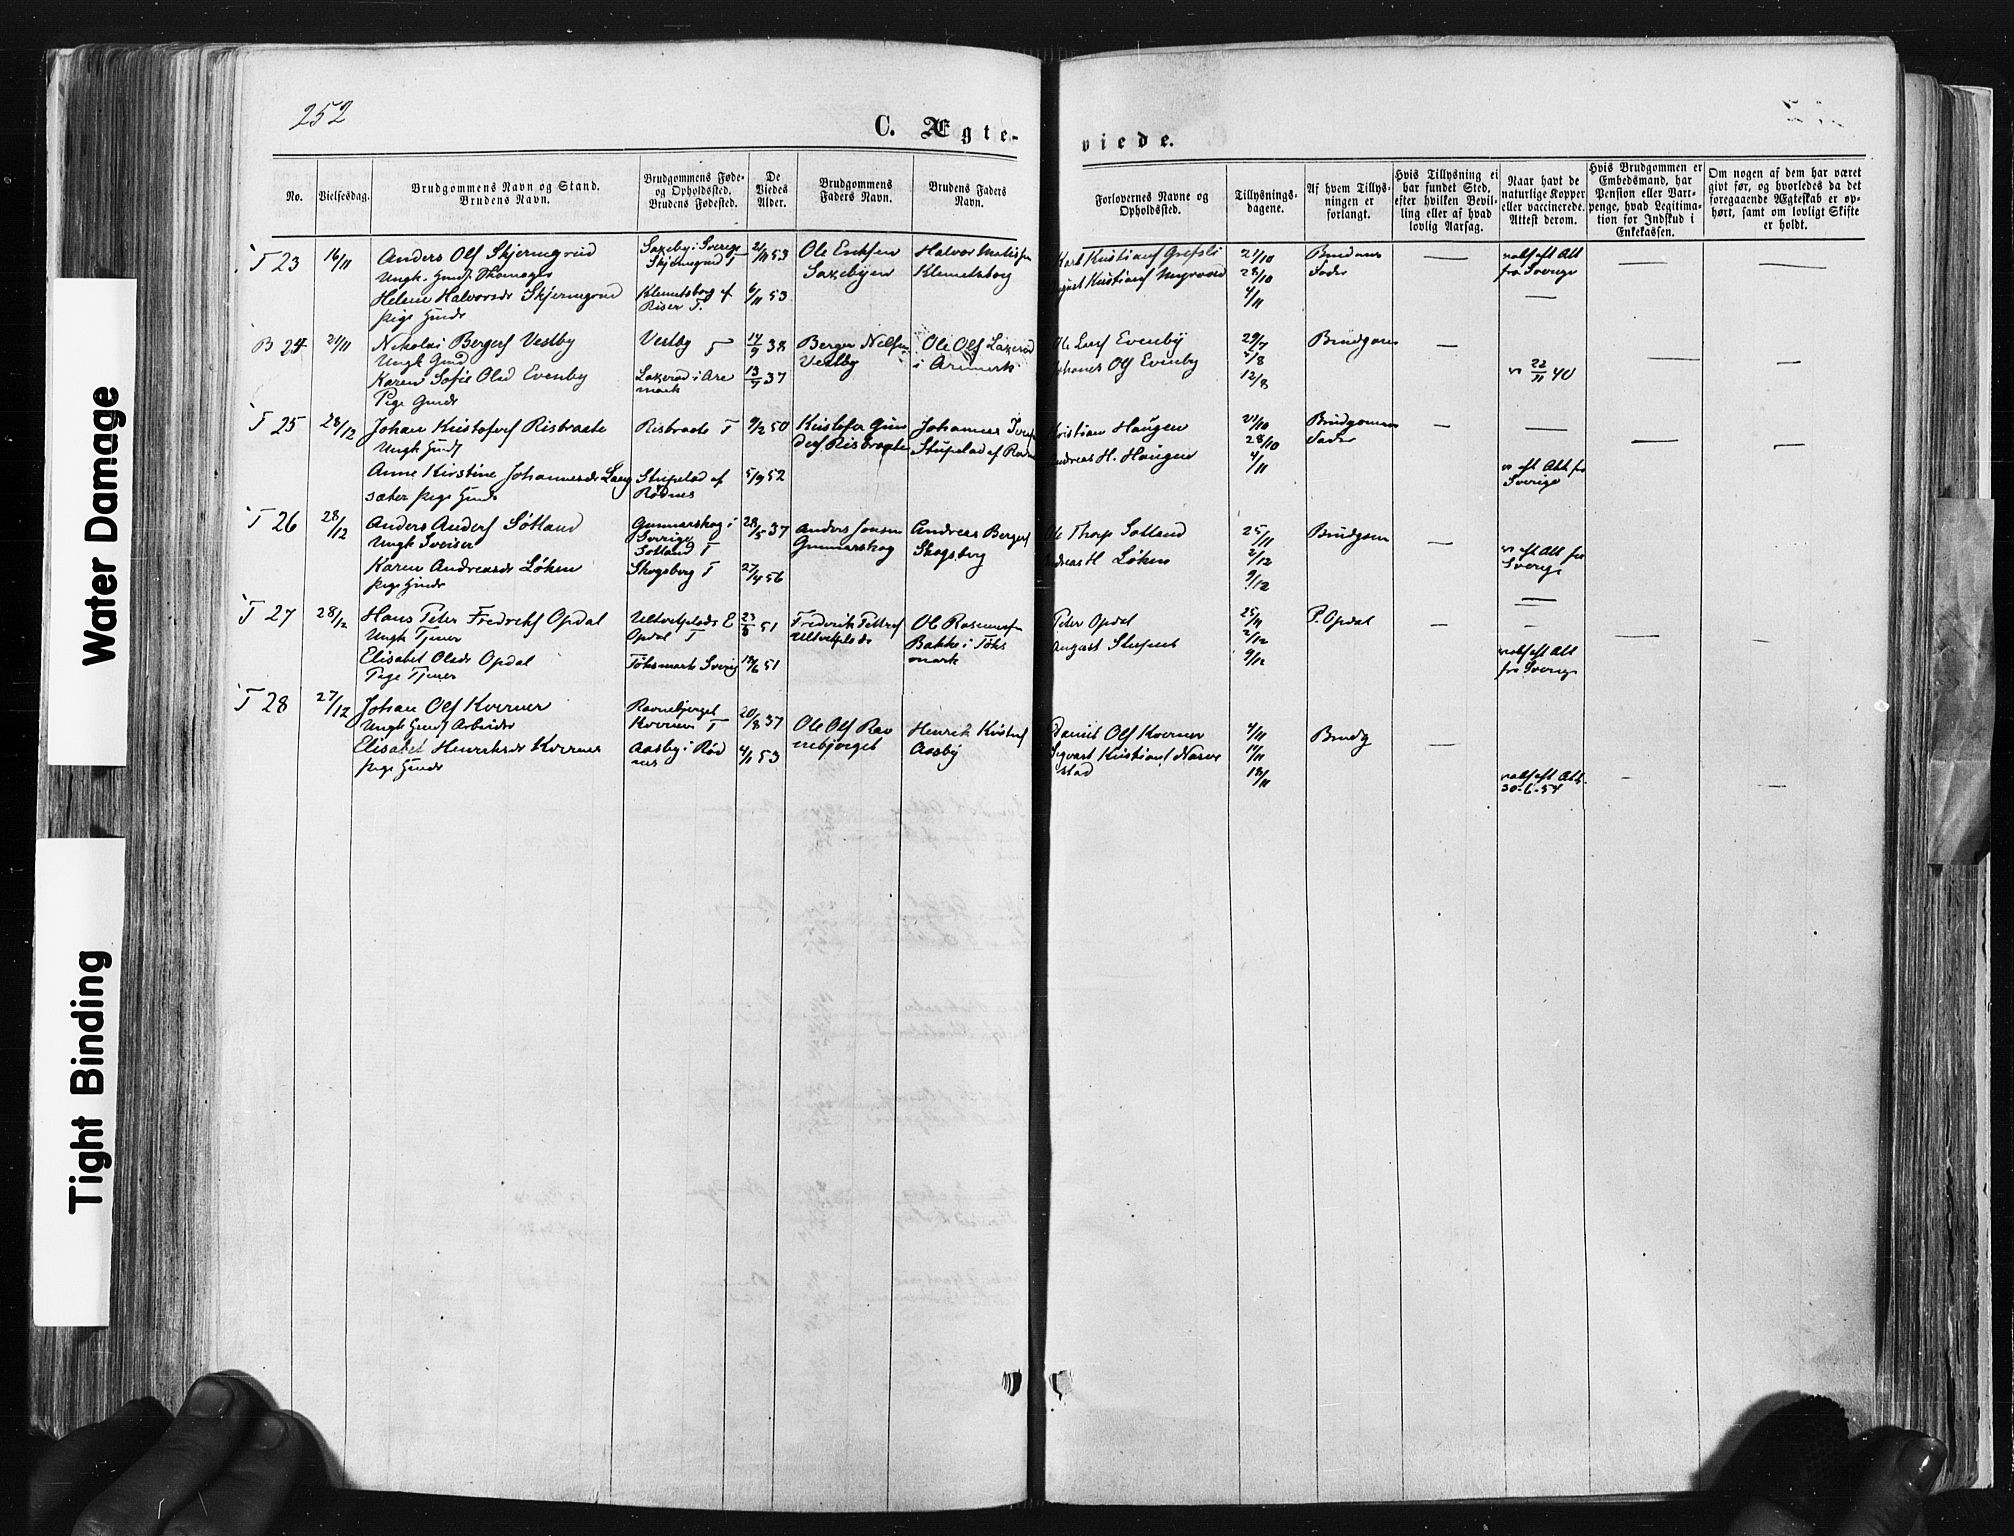 Water Damage
Tight Binding
252
C. Ægte-
viede.
No.
Vielsesdag.
Brudgommens Navn og Stand.
Brudens Navn.
Brudgommens Føde-
og Opholdssted.
Brudens Fødested.
De
Viedes
Alder.
Brudgommens
Faders Navn.
Brudens Faders
Navn.
Forlovernes Navne og
Opholdssted.
Tillysnings-
dagene.
Af hvem Tillys-
ningen er
forlangt.
Hvis Tillysning ei
har fundet Sted,
efter hvilken Bevil-
ling eller af hvad
lovlig Aarsag.
Naar havt de
naturlige Kopper
eller vaccinerede.
Attest derom.
Hvis Brudgommen er
Embedsmand, har
Pension eller Vart-
penge, hvad Legitima-
tion for Indskud i
Enkekassen.
Om nogen af dem har været
givt før, og hvorledes da det
foregaaende Ægteskab er op-
hørt, samt om lovligt Skifte
er holdt.
T 23
16/11
Anders Ols Skjerngrud
Ungk. Huusf.
Helene Halvorsdr Skjerngrud
Pige Huusdr
i Sverige
Skjerngrud T
Klemetsborg
Riser T.
2/11 53
6/11 53
Ole Eriksen
Halvor
Klemetsborg
Kristians
Kristians
21/10
28/10
4/11
Brudens
Fader
eft Att
fra Sverige
B 24
21/11
Nikolai Bergers Vestby
Ungk. Gmd
Karen Sofie Olsd Evenby
Pige Gmdr
Vestby T
i Are
mark
14/9 38
13/9 37
Berger Nilsen
Vestby
Ole Ols
i Aremark
Ole Evenby
Johanes Ols Evenby
29/7
5/8
12/8
Brudgom
22/11 40
T 25
28/12
Johan Kristofers Risbraate
Ungk Huusf
Anne Kirstine Johannesdr Lang
sæter Pige Huusdr
Risbraate T
Rødnes
9/2 50
5/9 52
Kristofer Gun
ders Risbraate
Johannes
Kristian Haugen
Andreas H. Haugen
21/10
28/10
4/11
Brudgommens
Fader
eft Att fra
Sverige
T 26
28/12
Anders Anders Søtland
Ungk Sveiser
Karen Andreasdr Løken
Pige Huusdr
Gunnarskog i
Sverige
Søtland T
Skogsberg T
28/5 37
27/4 56
Anders Jonsen
Gunnarskog
Andreas Bergers
Skogsberg
Ole Thorp Søtland
Andreas H Løken
25/11
2/12
9/12
Brudgom
eft Att fra
Sverige
T 27
28/12
Hans Peter Fredriks Opdal
Ungk Tjener
Elisabet Olsdr Opdal
Pige Tjener
Opdal T
Töksmark Sverig
23/8 51
18/6 51
Frederik
Ole Rasmussen
Bakke i Töks
mark
Peter Opdal
August
25/11
2/12
9/12
P. Opdal
eft Att
fra Sverige
T 28
27/12
Johan Ols Kverner
Ungk Huusf Arbeider
Elisabet Henriksdr Kverner
Pige Huusdr
Ravnebjerget
Kverner T
Aasby i Rød
nes
20/8 37
4/1 53
Ole Ols Rav
nebjerget
Henrik Kristofs
Aasby
Daniel Ols Kverner
Sigvart Kristians
stad
4/11
11/11
18/11
Brudg
eft Att.
30-6-54